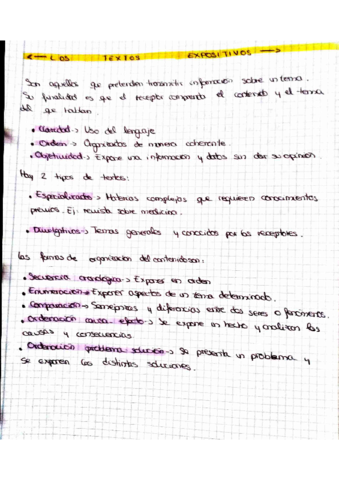 ← LOS TEXTOS EXPOSITIVOS →
Son aquellos que pretenden transmitir información sobre un tema.
Su finalidad es que el receptor comprenda el contenido y el tema
del que tratan.
• Claridad → Uso del lenguaje
• Orden → Organizados de manera coherente.
• Objetividad → Expone una información y datos sin dar su opinión.
Hay 2 tipos de textos:
• Especializados → Materias complejas que requieren conocimientos
previos. Ej: revista sobre medicina.
• Divulgativos → Temas generales y conocidos por los receptores.
Las formas de organización del contenido son:
• Secuencia cronológica → Exponer en orden
• Enumeración → Exponer aspectos de un tema determinado.
• Comparación → Semejanzas y diferencias entre dos seres o fenómenos.
• Ordenación causa efecto → Se expone un hecho y analizan las
causas y consecuencias.
• Ordenación problema solución → Se presenta un problema y
se exponen las distintas soluciones.